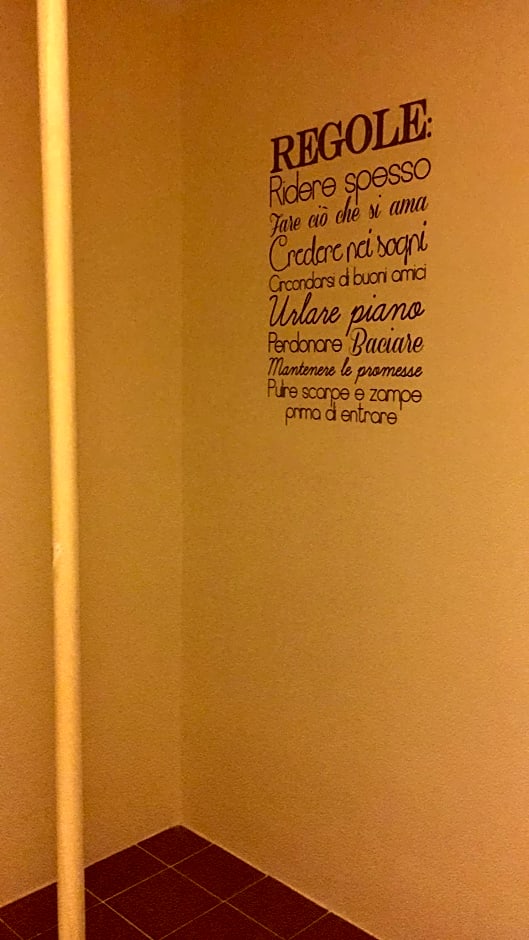 REGOLE:
Ridere spesso
Fare ciò che si ama
Credere nei sogni
Circondarsi di buoni amici
Urlare piano
Perdonare Baciare
Mantenere le promesse
Pulire scarpe e zampe
prima di entrare